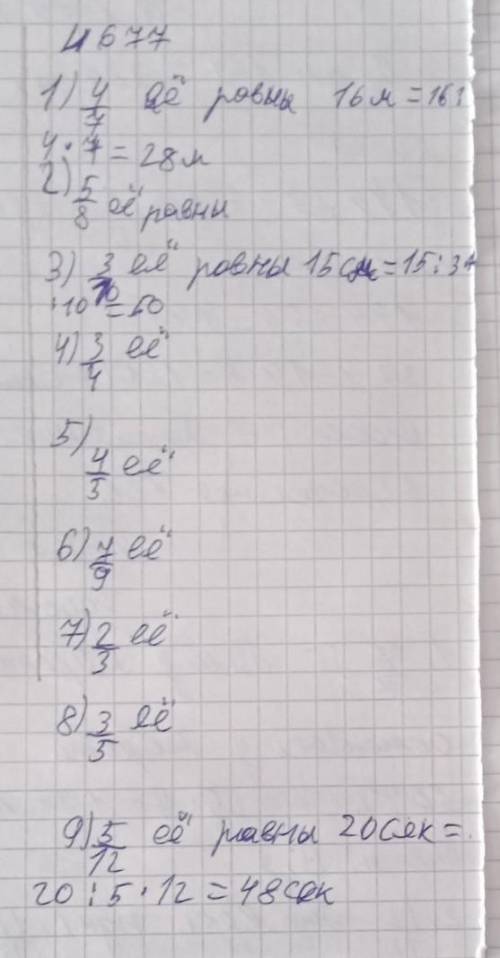 № 677
1) 4/7 её равны 16м = 16:
4 · 7 = 28м
2) 5/8 её равны
3) 3/10 её равны 15см = 15 : 3
· 10 = 50
4) 3/4 её
5)
4/3 её
6) 7/9 её
7) 2/3 её
8) 3/5 её
9) 5/12 её равны 20сек =
20 : 5 · 12 = 48сек